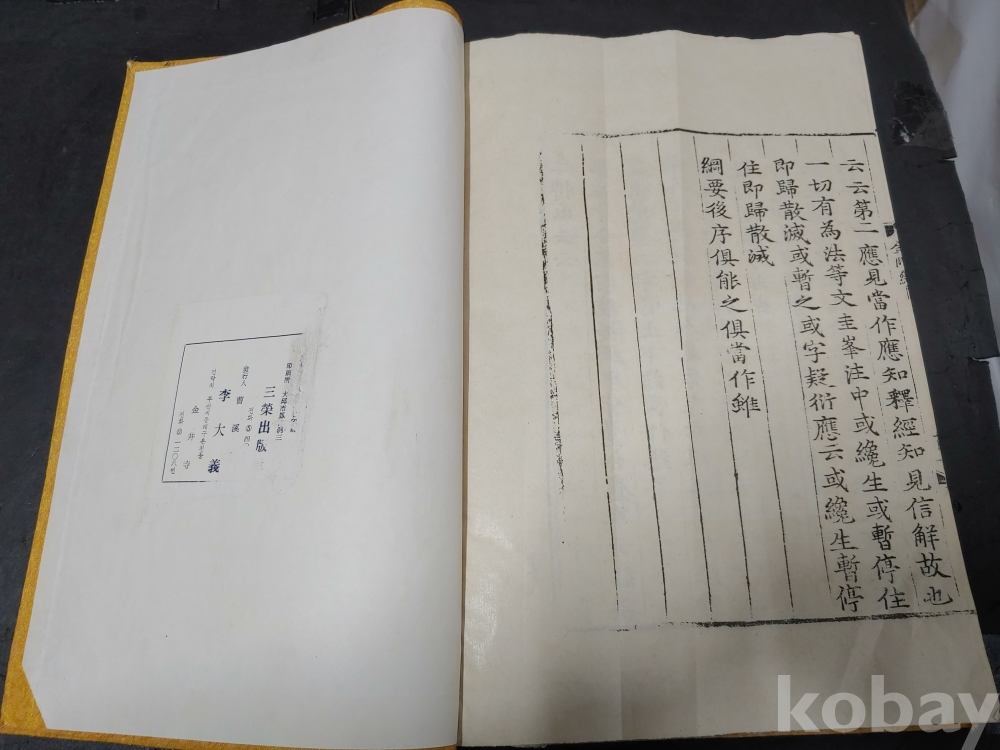 云云第二應見當作應知釋經知見信解故也
一切有為法等文圭峯注中或纔生或暫停住
即歸散滅或暫之或字疑衍應云或纔生暫停
住即歸散滅
綱要後序俱能之俱當作雖
印刷所 大邱市
三榮出版
發行人 曹溪
李大義
金井寺
kobay